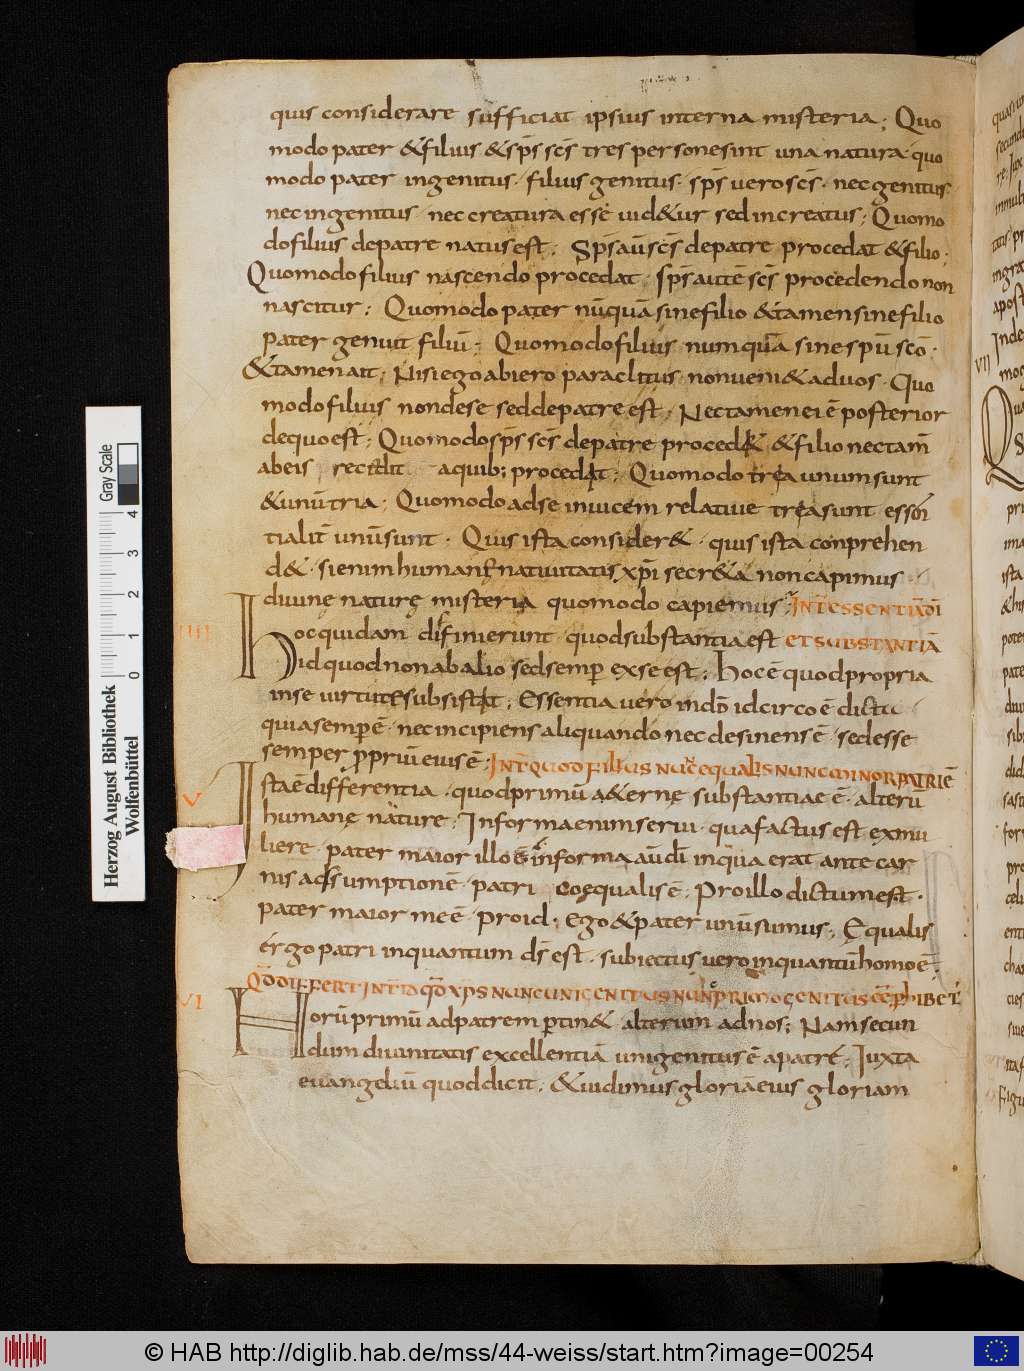 quis considerare sufficiat ipsius interna misteria; Quo
modo pater &filius &sp̄s sc̄s tres personesint una natura· quo
modo pater ingenitus· filius genitus· sp̄s uero sc̄s· nec genitus
nec ingenitus· nec creatura esse uid&ur sed increatus; Quomo
do filius depatre natus est; Sp̄s aūt sc̄s depatre procedat &filio;
Quomodo filius nascendo procedat· sp̄s autē sc̄s procedendo non
nascitur; Quomodo pater nūquā sine filio &tamen sine filio
pater genuit filiū; Quomodo filius numquā sine spū scō·
&tamen ait; Nisi ego abiero paraclitus non ueni& aduos· Quo
modo filius non dese sed depatre est; Nec tamen ei ē posterior
de quo est; Quomodo sp̄s sc̄s depatre proced& &filio nec tam̄
abeis recedit aquib; procedat; Quomodo trea unum sunt
&unū tria; Quomodo adse inuicem relatiue trea sunt essen
tialit̄ unū sunt· Quis ista consider&· quis ista conprehen
d&· si enim humanę natiuitatis xp̄i secr&a non capimus·
diuinę naturę misteria quomodo capiemus; INT̄ ESSENTIĀ DI
IIII hoc quidam diffinierunt quod substantia est ET SUBSTANTIĀ
id quod non ab alio sed semp exse est; Hoc ē quod propria
inse uirtute subsistat; Essentia uero in dō idcirco ē dictu
quia semper ē· nec incipiens aliquando nec desinens ē· sed esse
semper p̄priū eius ē; INT̄ QUOD FILIUS NUC̄ EQUALIS NUNC MINOR PATRI Ē
V Ista ē differentia· quod primū a&ernę substantiae ē· alterū
humanę nature; In forma enim serui· qua factus est exmu
liere· pater maior illo ē in forma aūt dī inqua erat ante car
nis adsumptionē· patri coęqualis ē; Pro illo dictum est·
pater maior me ē· pro id· ego &pater unū sumus; Equalis
ergo patri inquantum dS̄ est· subiectus uero inquantū homo ē;
QD̄ DIFFERT INT̄ ID QD̄ XPS NUNC UNIGENITUS NUNC PRIMOGENITUS EĒ PHIBET̄
VI Horū primū adpatrem ptin& alterum adnos; Nam secun
dum diuinitatis excellentiā unigenitus ē apatre; Iuxta
euangeliū quod dicit; &uidimus gloriā eius gloriam
VII
Herzog August Bibliothek
Wolfenbüttel
Gray Scale
0 1 2 3 4
© HAB http://diglib.hab.de/mss/44-weiss/start.htm?image=00254